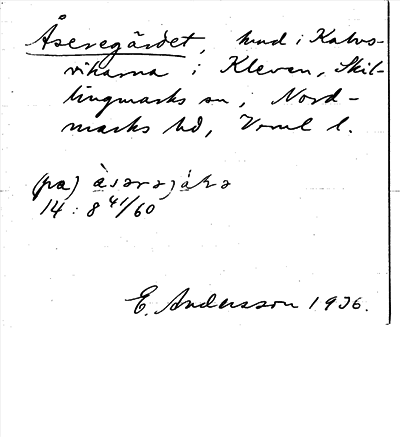 Åseregärdet, hmd i Kalvs-
vikarna i Kleven, Skil-
lingmarks sn, Nord-
marks hd, Vrml l.
(pa)
14 : 8 41/60
E. Andersson 1936.